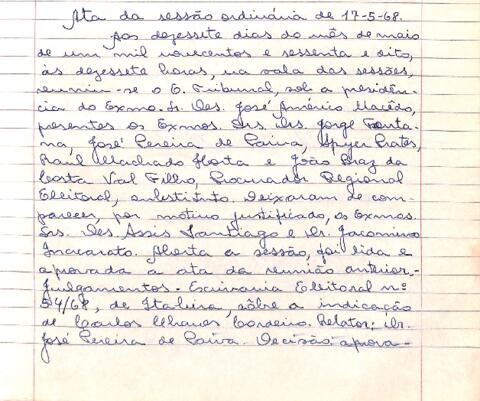 Ata da sessão ordinária de 17-5-68.
Aos dezessete dias do mês de maio
de um mil novecentos e sessenta e oito,
às dezessete horas, na sala das sessões,
reuniu-se o E. Tribunal, sob a presidên-
cia do Exmo. Sr. Des. José Américo Macêdo,
presentes os Exmos. Srs. Drs. Jorge Fonta-
na, José Pereira de Paiva, Spyer Prates,
Raul Machado Horta e João Braz da
Costa Val Filho, Procurador Regional
Eleitoral, substituto. Deixaram de com-
parecer, por motivo justificado, os Exmos.
Srs. Des. Assis Santiago e Dr. Jacomino
Inacarato. Aberta a sessão, foi lida e
aprovada a ata da reunião anterior.-
Julgamentos - Escrivania Eleitoral nº
54/68, de Itabira, sôbre a indicação
de Carlos Cordeiro. Relator: Dr.
José Pereira de Paiva. Decisão: aprova-